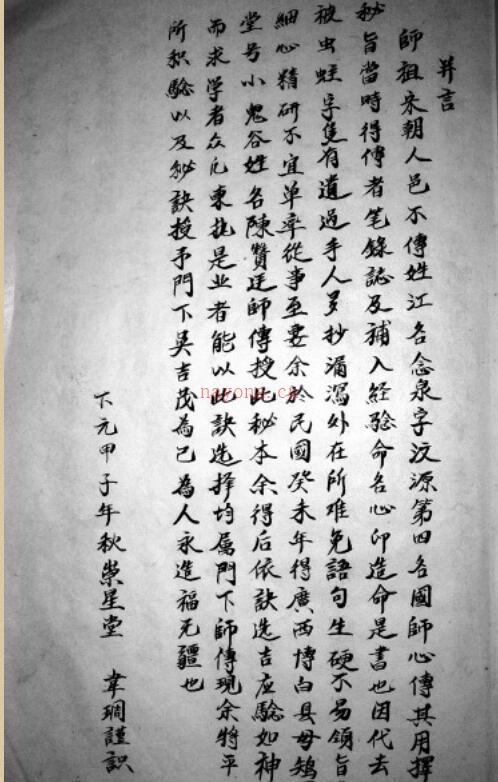 并言
師祖宋朝人邑不傳姓江名念泉字汶源第四名國師心傳其用擇
秘旨當時得傳者笔錄誌及補入经驗命名心印造命是書也因代去
被虫蛀字隻有遺過手人多抄漏瀉外在所难免語句生硬不易領旨
細心精研不宜单率從事至要余於民國癸未年得廣西博白县母鸡
堂号小鬼谷姓名陳贊廷師傳授此秘本余得后依訣选吉应驗如神
而求学者众凡東執是业者能以此訣选擇均属門下師傳現余将平
所积驗以及秘訣授予門下吴吉茂為己為人永造福无疆也
下元甲子年秋崇星堂 韋琱謹識
nayona.cn